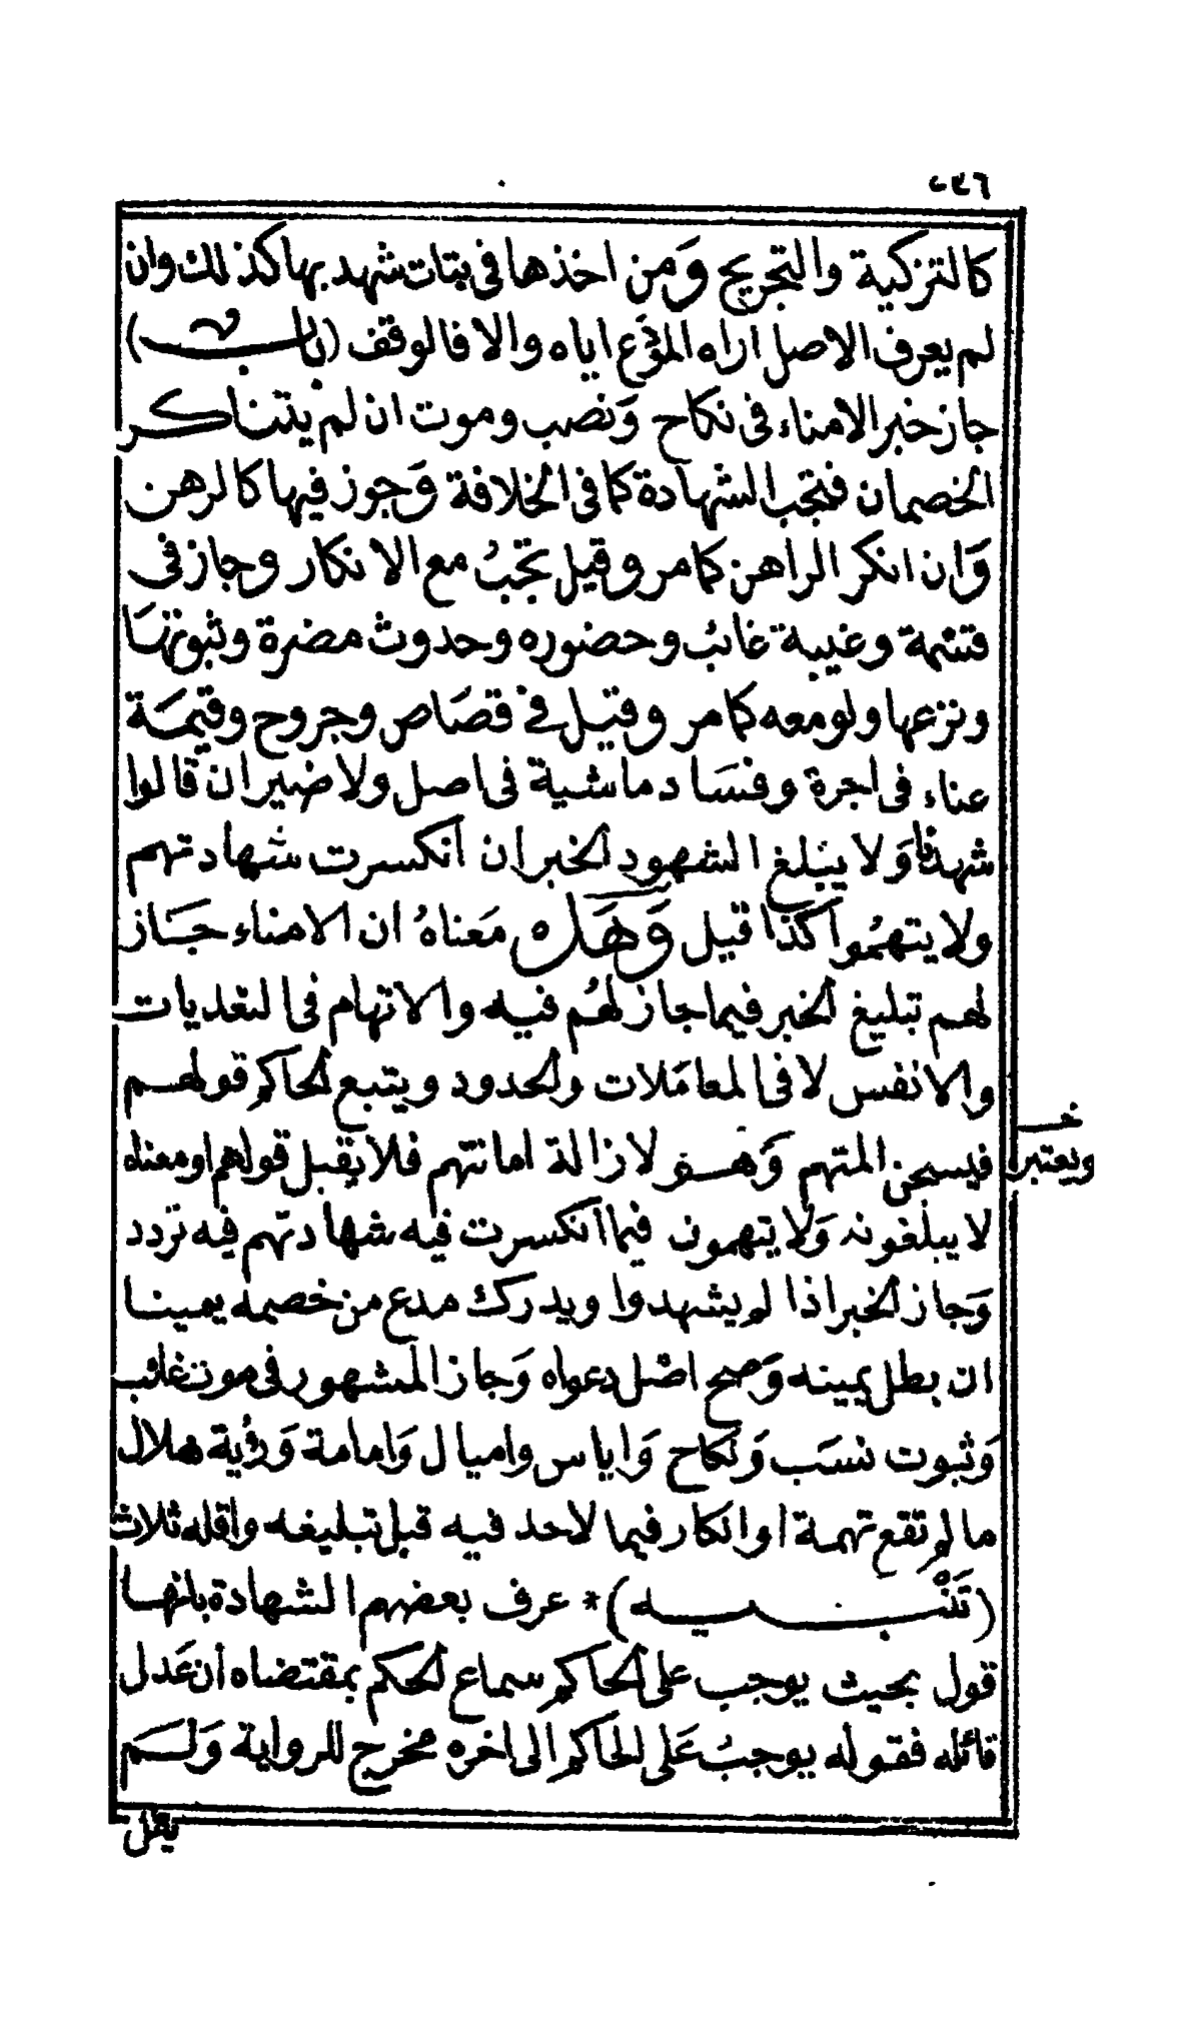 كالتزكية والتجريح وَمن اخذها فى بتات شهد بها كذلك وان
لم يعرف الاصل اراه المؤرع اياه والا فالوقف (باب)
جاز خبر الامناء فى نكاح وَنصب وموت ان لم يتناكر
الخصمان فتجب الشهادة كما فى الخلافة وَجوز فيها كالرهن
وَان انكر الراهن كما مر وقيل تجبُ مع الانكار وجاز فى
قتنهمة وغيبة غائب وحضوره وحدوث مضرة وثبوتها
ونزعها ولو معه كما مر وقيل فى قصَاص وجروح وقيمَة
عناء فى اجرة وفسَاد ماشية فى اصل ولا ضير ان قالوا
شهدنا وَلا يبلغ الشهود الخبر ان انكسرت شهادتهم
ولا يتهمُوا كذا قيل وَهَل مَعناهُ ان الامناء جَاز
لهم تبليغ الخبر فيما جاز لهُم فيه والاتهام فى التعديات
والانفس لا فى المعامَلات والحدود ويتبع الحاكم قولهم
فيسجن المتهم وَهو لازالة امانتهم فلا يقبل قولهم او معناه
خـ
ويعتبر
لا يبلغونه وَلا يتهمون فيما انكسرت فيه شهادتهم فيه تردد
وَجاز الخبر اذا لم يشهدوا ويدرك مدع من خصمه يمينا
ان بطل يمينه وَصح اصْل دعواه وَجاز المشهور فى موت غائب
وَثبوت نسَب وَنكاح وَاياس واميال وَامامة وَرؤية هلال
ما لم تقع تهمة او انكار فيما لاحد فيه قبل تبليغه واقله ثلاث
(تَنْبيه)* عرف بعضهم الشهادة بانها
قول بحيث يوجب على الحاكم سماع الحكم بمقتضاه ان عَدل
قائله فقوله يوجبُ عَلى الحاكم الى اخره مخرج للرواية وَلم
يقل